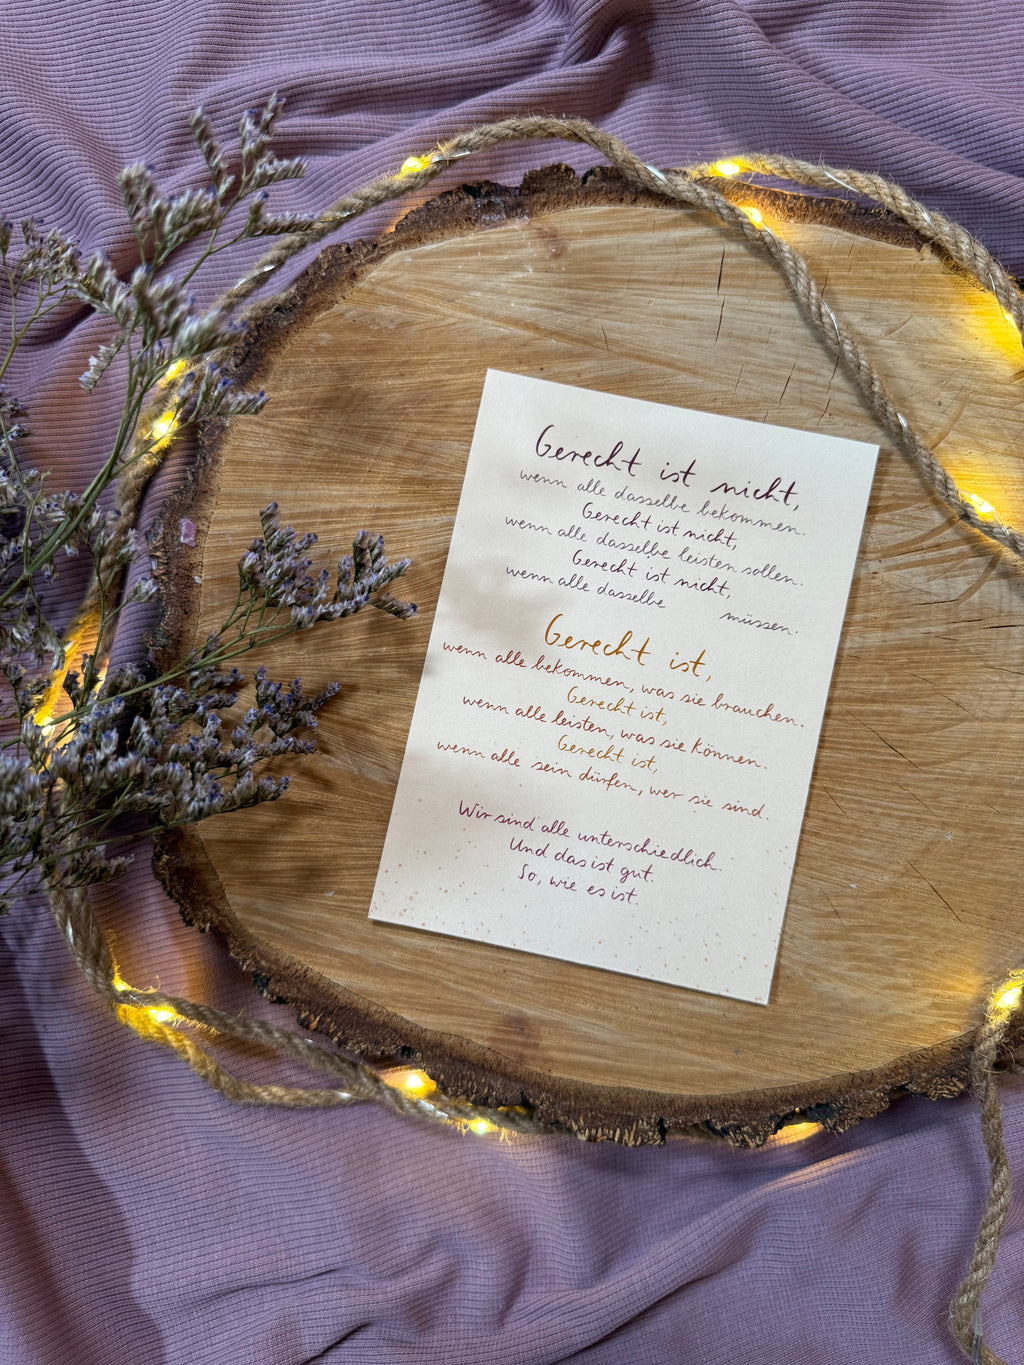 Gerecht ist nicht,
wenn alle dasselbe bekommen.
Gerecht ist nicht,
wenn alle dasselbe leisten sollen.
Gerecht ist nicht,
wenn alle dasselbe müssen.
Gerecht ist,
wenn alle bekommen, was sie brauchen.
Gerecht ist,
wenn alle leisten, was sie können.
Gerecht ist,
wenn alle sein dürfen, wer sie sind.
Wir sind alle unterschiedlich.
Und das ist gut.
So, wie es ist.